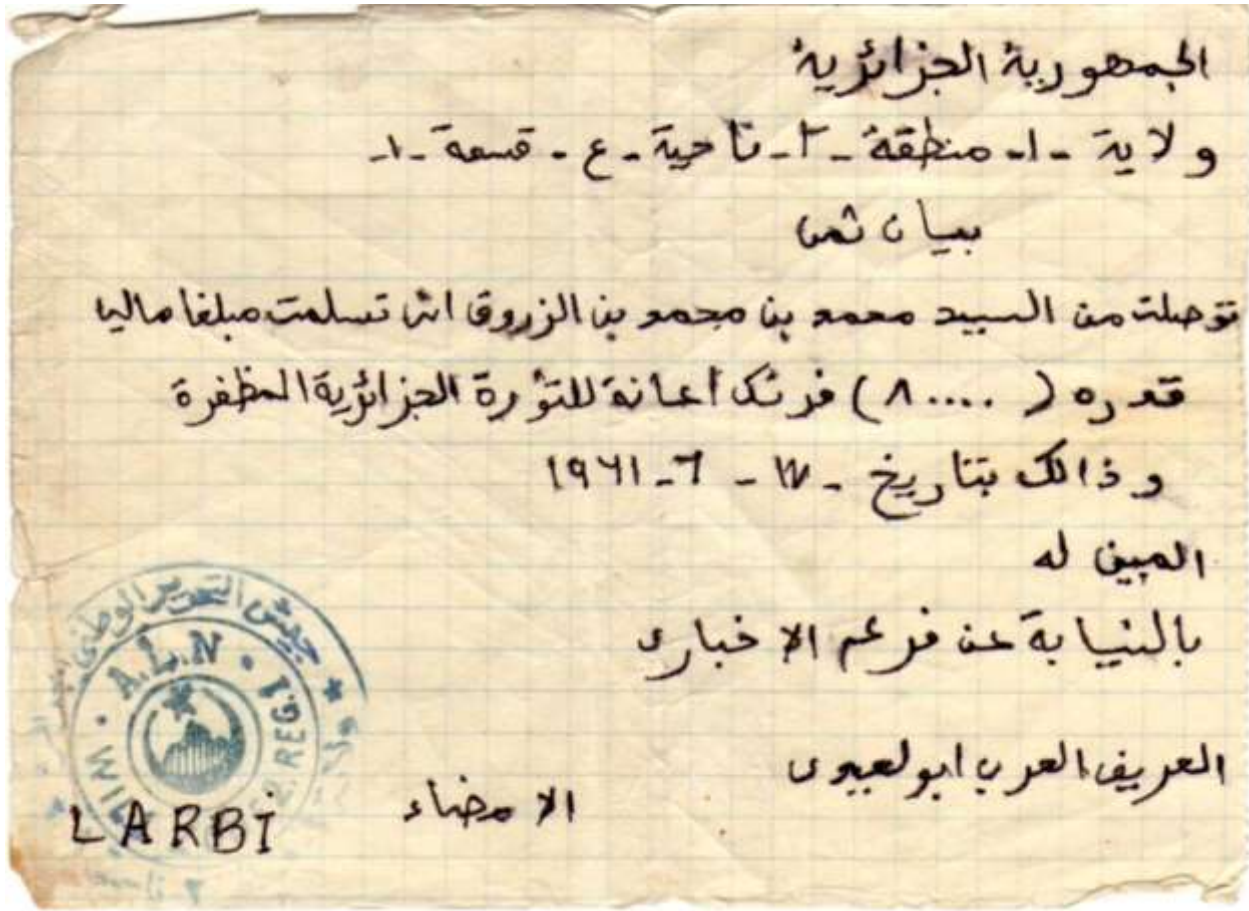 الجمهورية الجزائرية
ولاية -١- منطقة -٢- ناحية -ع- قسمة -١-
بيان ثمن
توصلت من السييد محمد بن محمد بن الزروق انى تسلمت مبلغا ماليا
قدره (٨٠٠٠٠) فرنك اعانة للثورة الجزائرية المظفرة
و ذالك بتاريخ - ١٧ - ٦ - ١٩٦١
المبين له
بالنيابة عن فرعم الاخبارى
العريف العربى
الامضاء
LARBI
جيش التحرير الوطنى
A.L.N
WIL
REG.